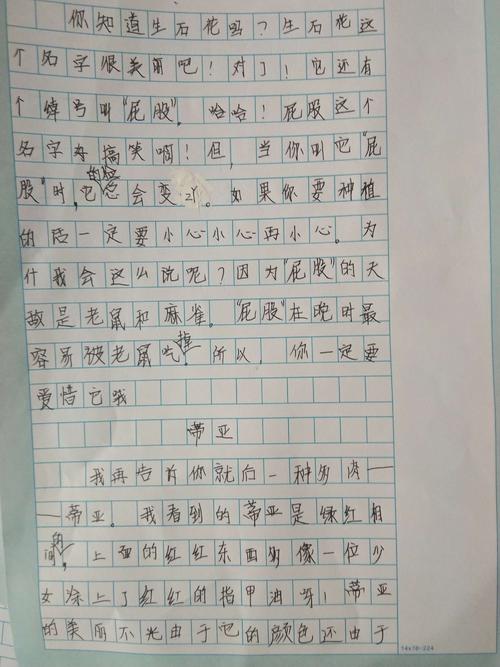 你知道生石花吗？生石花这
个名字很美丽吧！对了！它还有
个绰号叫“屁股”。哈哈！屁股这个
名字好搞笑啊！但，当你叫它“屁
股”时，它的脸总会变。如果你要种植
的话一定要小心小心再小心。为
什我会这么说呢？因为“屁股”的天
敌是老鼠和麻雀。“屁股”在晚时最
容易被老鼠吃掉！所以，你一定要
爱惜它哦
蒂亚
我再告诉你就后一种多肉—
—蒂亚。我看到的蒂亚是绿红相
间的，上面的红红东西多像一位少
女涂上了红红的指甲油呀！蒂亚
的美丽不光由于它的颜色还由于
14×16=224